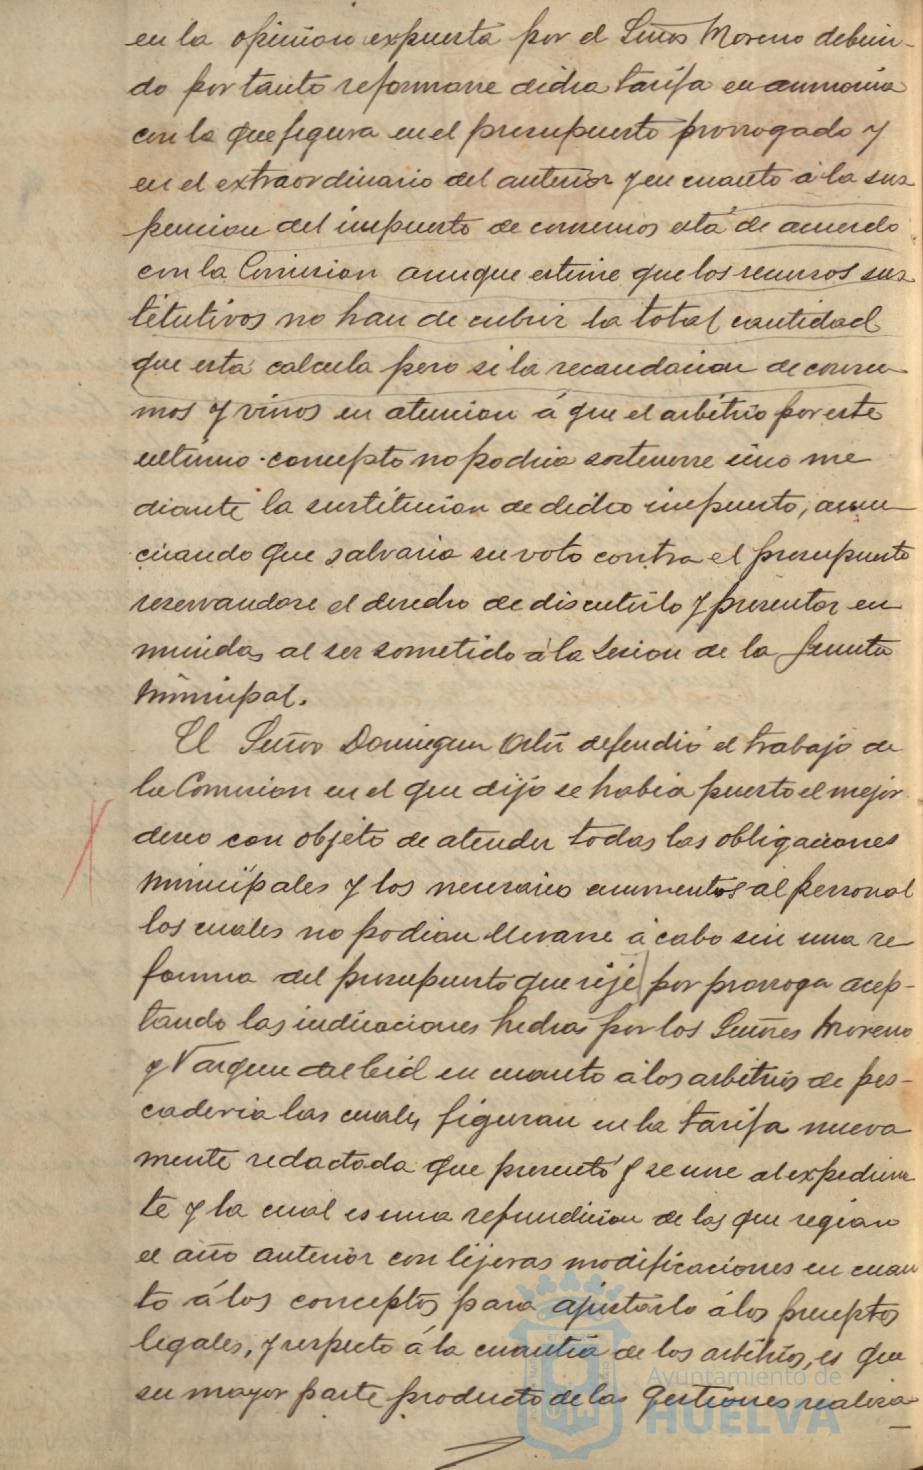 en la opinion expuesta por el Señor Moreno debien-
do por tanto reformarse dicha tarifa en armonia
con la que figura en el presupuesto prorrogado y
en el extraordinario del anterior y en cuanto á la sus
pension del impuesto de consumos está de acuerdo
con la Comision aunque estime que los recursos sus
titutivos no han de cubrir la total cantidad
que esta calcula pero si la recaudacion de consu-
mos y vinos en atencion á que el arbitrio por este
ultimo concepto no podria sostenerse sino me
diante la sustitucion de dicho impuesto, anun-
ciando que salvaria su voto contra el presupuesto
reservandose el derecho de discutirlo y presentar en
miendas al ser sometido á la sesion de la Junta
Municipal.
El Señor Dominguez Ortiz defendió el trabajo de
la Comision en el que dijo se habia puesto el mejor
deseo con objeto de atender todas las obligaciones
Municipales y los necesarios aumentos al personal
los cuales no podian llevarse á cabo sin una re
forma del presupuesto que rije por prorroga acep-
tando las indicaciones hechas por los Señores Moreno
y Vazquez del Cid en cuanto á los arbitrios de pes-
caderia las cuales figuran en la tarifa nueva
mente redactada que presentó y se une al expedien
te y la cual es una refundicion de las que regian
el año anterior con lijeras modificaciones en cuan
to á los conceptos para ajustarlo á los preceptos
legales, y respecto á la cuantia de los arbitrios, es que
su mayor parte producto de las gestiones realiza-
Ayuntamiento de
HUELVA